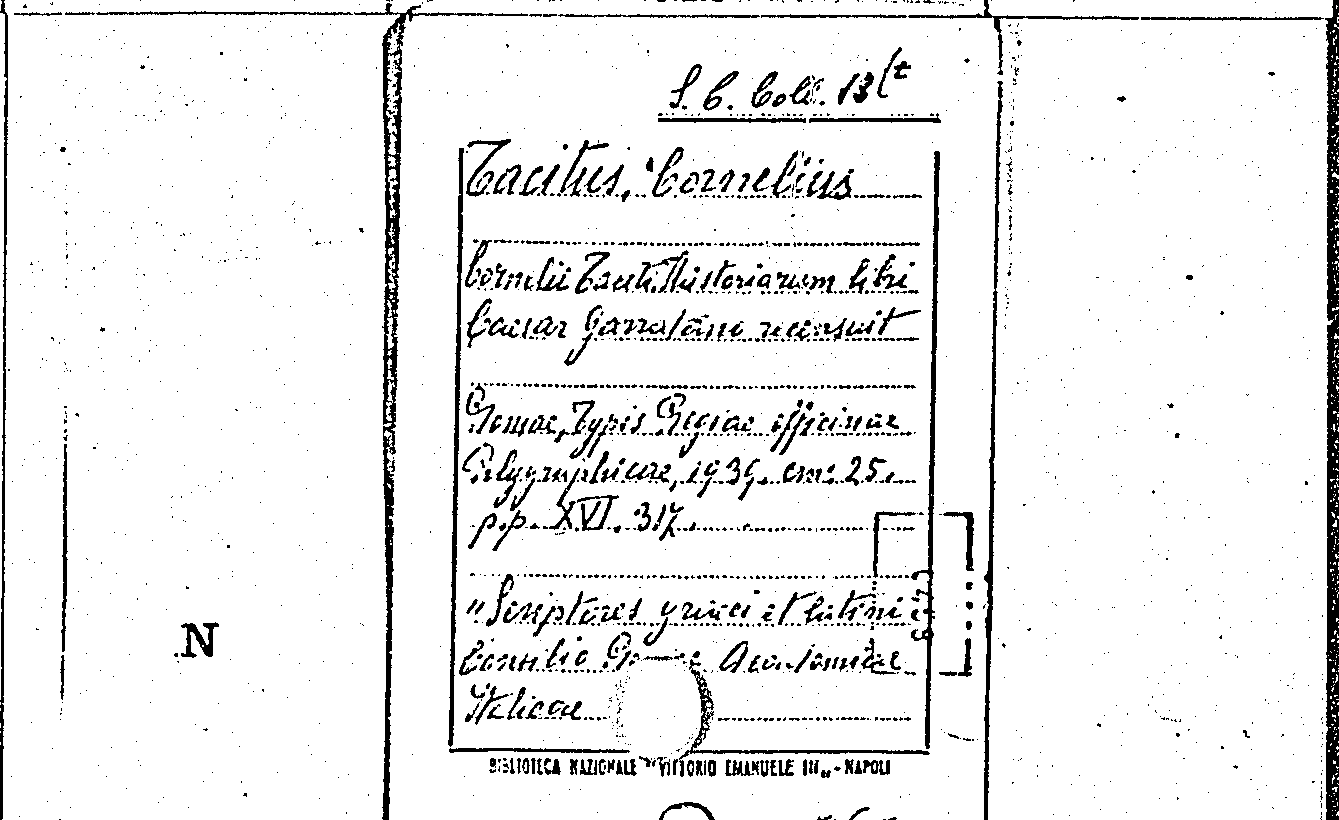 S. C. Coll. 13(t
Tacitus, Cornelius
Cornelii Taciti Historiarum libri
Caesar Giarratano recensuit
Romae, Typis Regiae officinae
Polygraphicae, 1939. cm: 25.
p.p. XVI. 317.
"Scriptores graeci et latini
Consilio Academiae
Italicae
N
BIBLIOTECA NAZIONALE "VITTORIO EMANUELE III" - NAPOLI